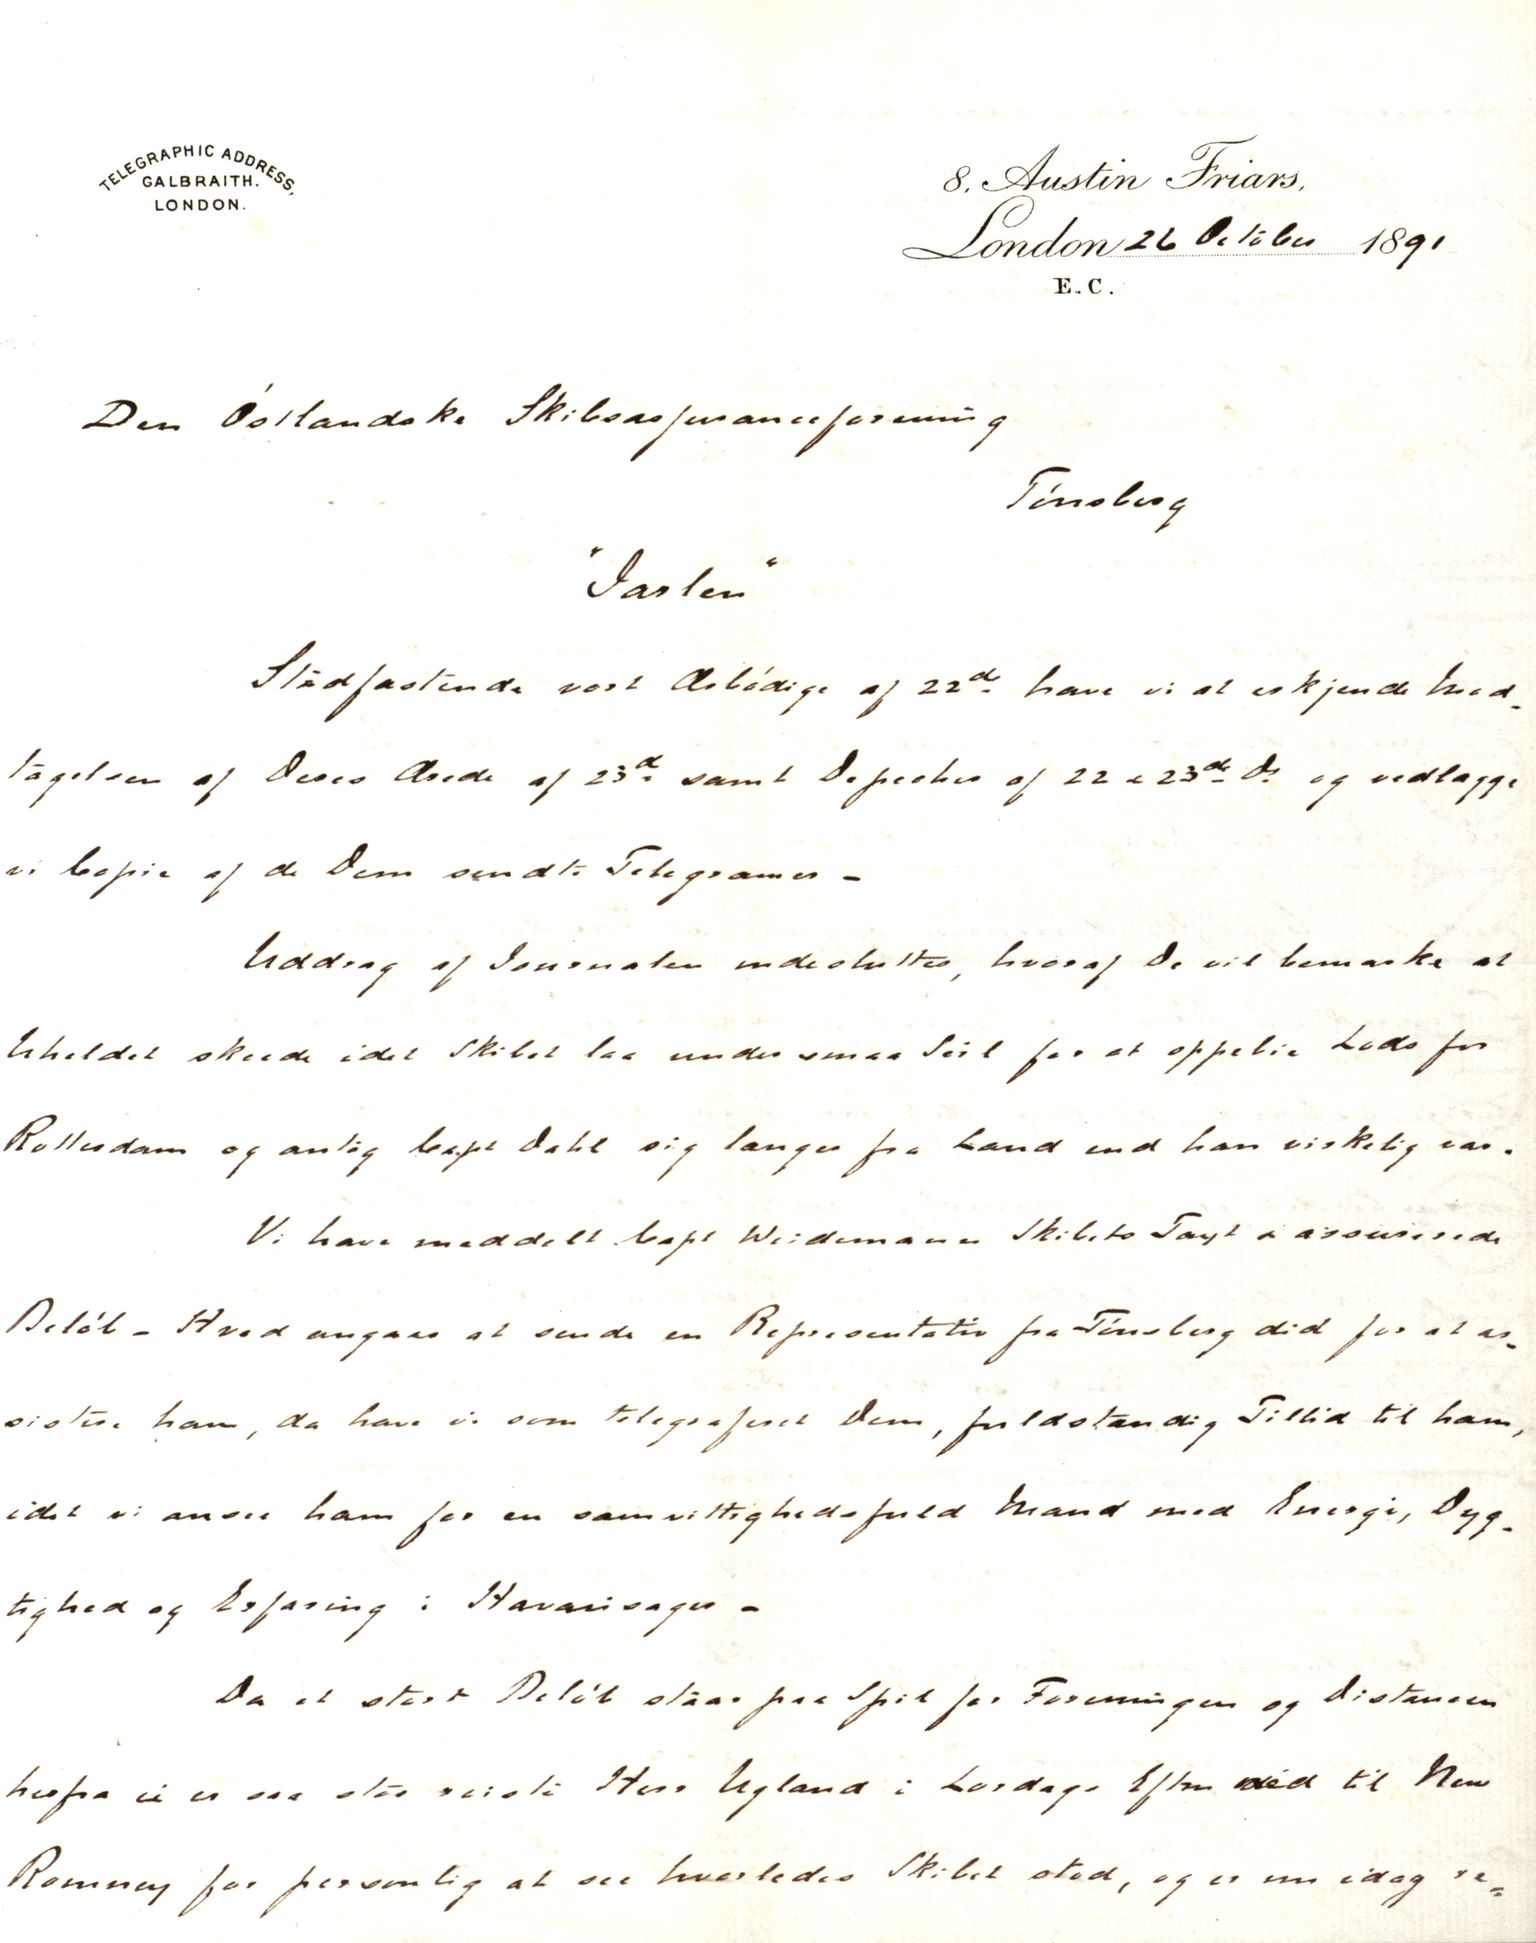 TELEGRAPHIC ADDRESS,
GALBRAITH.
LONDON.
8. Austin Friars,
London 26 October 1891
E.C.
Den Östlandske Skibsassuranceforening
Tönsberg
"Jarlen"
Stadfæstende vort Ærbödige af 22de have vi at erkjende Mod-
tagelsen af Deres Ærede af 23de samt Depecher af 22 & 23de Ds og vedlægge
vi Copie af de Dem sendte Telegramer -
Uddrag af Journalen indesluttes, hvoraf De vil bemærke at
Uheldet skeede idet Skibet laa under smaa Seil for at oppebie Lods for
Rotterdam og antog Capt Dahl sig længer fra Land end han virkelig var.
Vi have meddelt Capt Weidemann Skibets Taxt & assurerede
Belöb - Hvad angaar at sende en Representativ fra Tönsberg did for at as-
sistere ham, da have vi som telegraferet Dem, fuldstændig Tillid til ham,
idet vi ansee ham for en samvittighedsfuld Mand med Energi, Dyg-
tighed og Erfaring i Havarisager -
Da et stort Belöb staar paa Spil for Foreningen og Distancen
herfra ei er saa stor reiste Herr Ugland i Lordags Efterm did til New
Romney for personlig at see hvorledes Skibet stod, og er nu idag re=